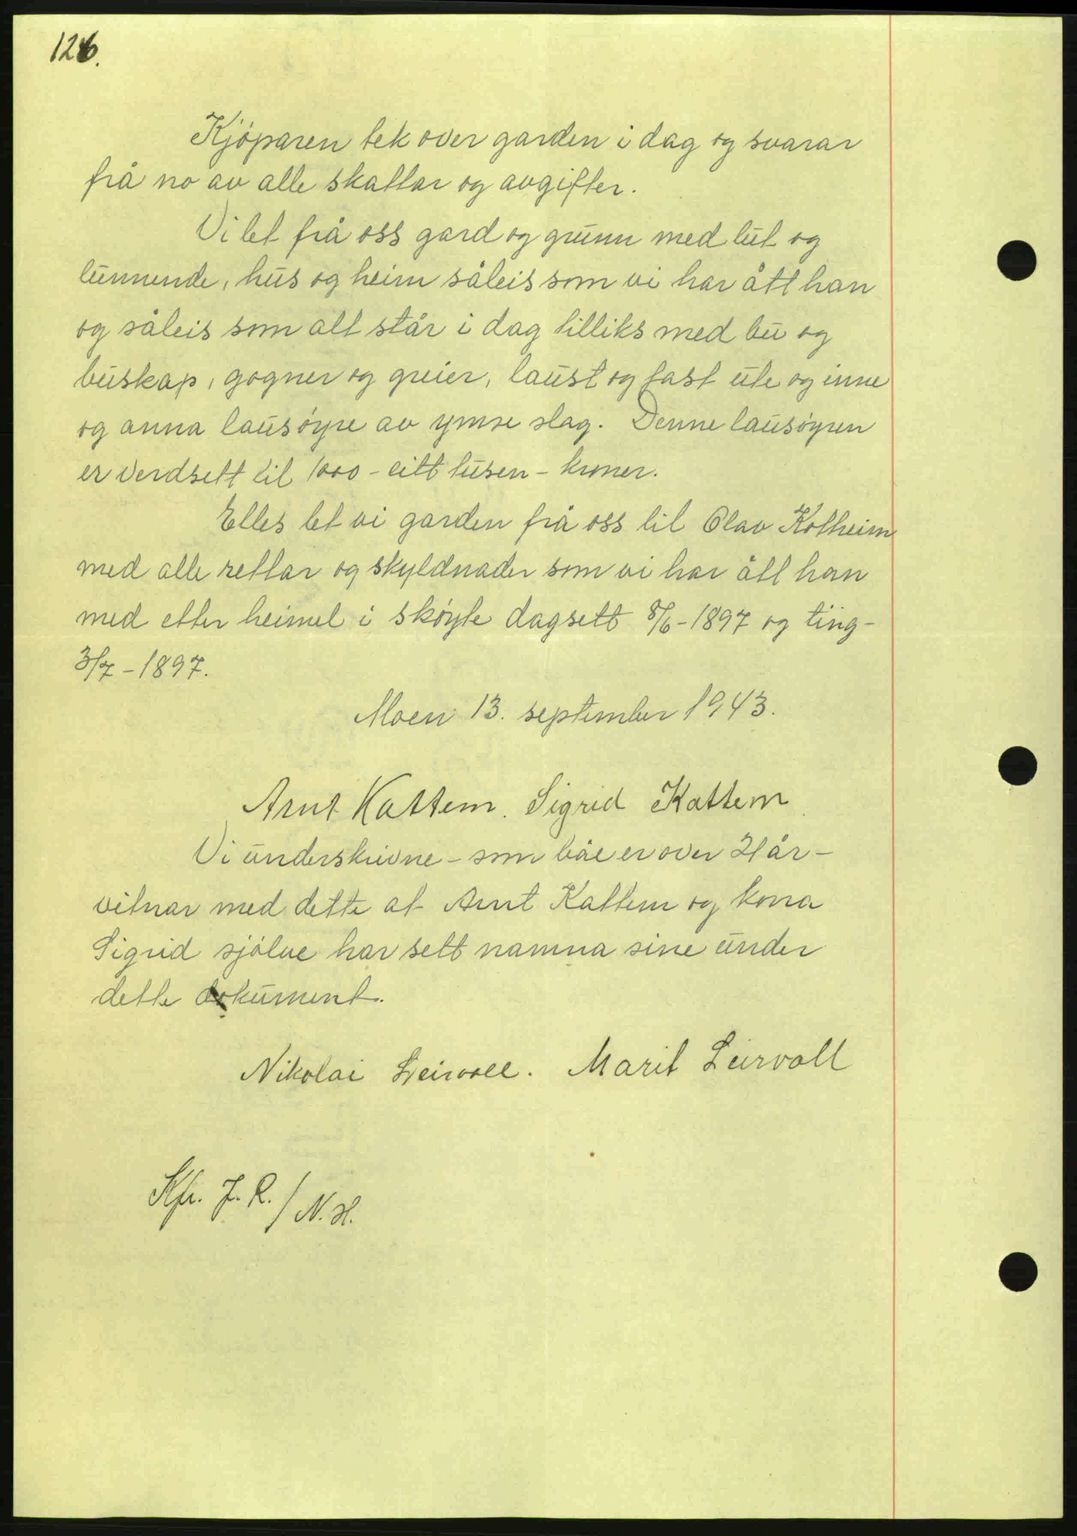 126.
Kjöparen tek over garden i dag og svarar
frå no av alle skattar og avgifter.
Vi let frå oss gard og grunn med lut og
lunnende, hus og heim såleis som vi har ått han
og såleis som alt står i dag tilliks med bu og
buskap, gogner og greier, laust og fast ute og inne
og anna lausøyre av ymse slag. Denne lausøyren
er verdsett til 1000 - eitt tusen - kroner.
Elles let vi garden frå oss til Olav Kotheim
med alle rettar og skyldnader som vi har ått han
med etter heimel i skøyte dagsett 8/6-1897 og ting-
3/7-1897.
Moen 13. september 1943.
Arnt Kattem. Sigrid Kattem
Vi underskrivne - som båe er over 21 år -
vitnar med dette at Arnt Kattem og kona
Sigrid sjölve har sett namna sine under
dette dokument.
Nikolai Leirvoll. Marit Leirvoll
Kfr. J. R. / N. H.